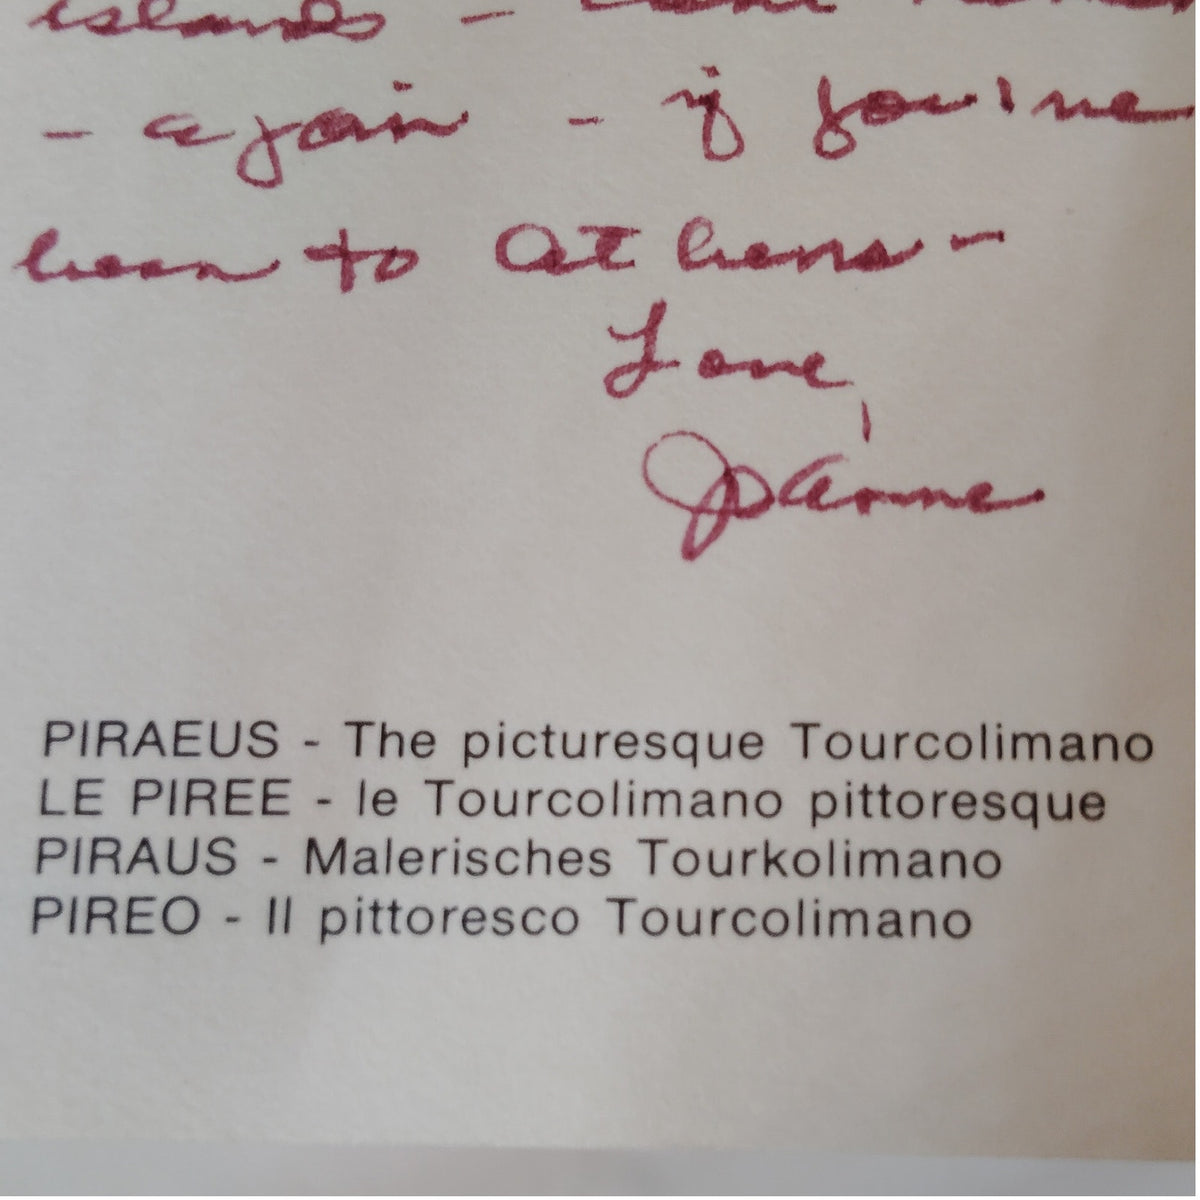 islands - can't
- again - if you've
been to Athens -
Love,
JoAnne
PIRAEUS - The picturesque Tourcolimano
LE PIREE - le Tourcolimano pittoresque
PIRAUS - Malerisches Tourkolimano
PIREO - Il pittoresco Tourcolimano